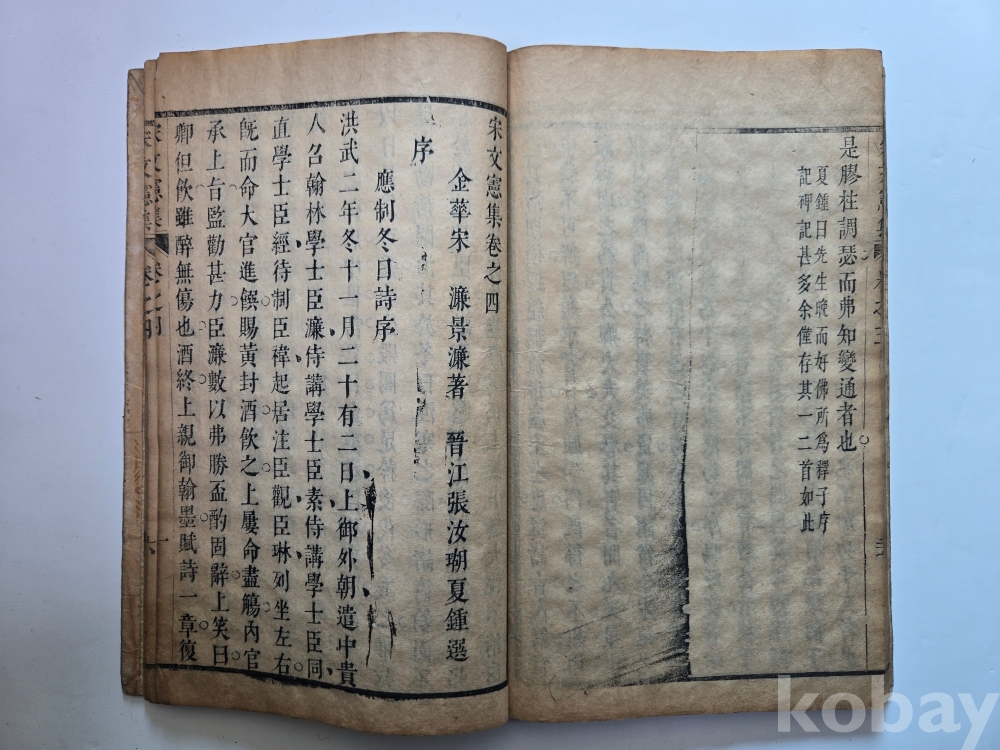 是膠柱調瑟而弗知變通者也
夏鍾曰先生晚而好佛所爲釋子序
記碑記甚多余僅存其一二首如此
宋文憲集卷之四
金華宋 濂景濂著 晉江張汝瑚夏鍾選
序
應制冬日詩序
洪武二年冬十一月二十有二日上御外朝遣中貴
人召翰林學士臣濂侍講學士臣素侍講學士臣同
直學士臣經待制臣禕起居注臣觀臣琳列坐左右
旣而命大官進饌賜黃封酒飲之上屢命盡觴內官
承上旨監勸甚力臣濂數以弗勝盃酌固辭上笑曰
卿但飲雖醉無傷也酒終上親御翰墨賦詩一章復
宋文憲集 卷之四 一
宋文憲集 卷之四
kobay